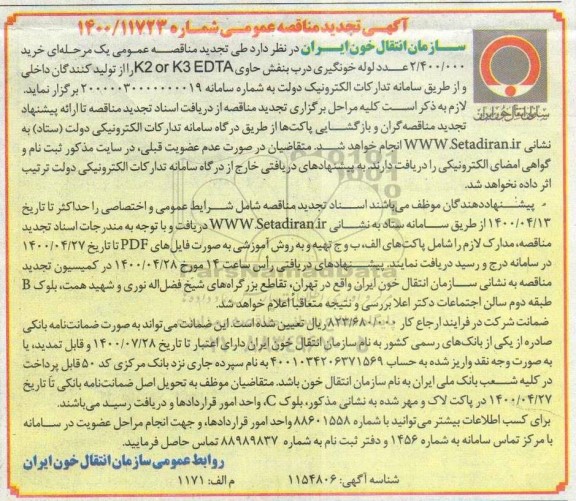 آگهی تجدید مناقصه عمومی شماره ۱۴۰۰/۱۱۷۲۳
سازمان انتقال خون ایران در نظر دارد طی تجدید مناقصه عمومی یک مرحله‌ای خرید
۲/۴۰۰/۰۰۰ عدد لوله خونگیری درب بنفش حاوی K2 or K3 EDTA را از تولید کنندگان داخلی
و از طریق سامانه تدارکات الکترونیک دولت به شماره سامانه ۲۰۰۰۰۰۳۰۰۰۰۰۰۰۰۱۹ برگزار نماید.
لازم به ذکر است کلیه مراحل برگزاری تجدید مناقصه از دریافت اسناد تجدید مناقصه تا ارائه پیشنهاد
تجدید مناقصه‌گران و بازگشایی پاکت‌ها از طریق درگاه سامانه تدارکات الکترونیکی دولت (ستاد) به
نشانی WWW.Setadiran.ir انجام خواهد شد. متقاضیان در صورت عدم عضویت قبلی، در سایت مذکور ثبت نام و
گواهی امضای الکترونیکی را دریافت دارند. به پیشنهادهای دریافتی خارج از درگاه سامانه تدارکات الکترونیکی دولت ترتیب
اثر داده نخواهد شد.
پیشنهاددهندگان موظف می‌باشند اسناد تجدید مناقصه شامل شرایط عمومی و اختصاصی را حداکثر تا تاریخ
۱۴۰۰/۰۴/۱۳ از طریق سامانه ستاد به نشانی WWW.Setadiran.ir دریافت و با توجه به مندرجات اسناد تجدید
مناقصه، مدارک لازم را شامل پاکت‌های الف، ب و ج تهیه و به روش آموزشی به صورت فایل‌های PDF تا تاریخ ۱۴۰۰/۰۴/۲۷
در سامانه درج و رسید دریافت نمایند. پیشنهادهای دریافتی رأس ساعت ۱۴ مورخ ۱۴۰۰/۰۴/۲۸ در کمیسیون تجدید
مناقصه به نشانی سازمان انتقال خون ایران واقع در تهران، تقاطع بزرگراه‌های شیخ فضل‌اله نوری و شهید همت، بلوک B
طبقه دوم سالن اجتماعات دکتر اعلا بررسی و نتیجه متعاقباً اعلام خواهد شد.
ضمانت شرکت در فرایند ارجاع کار ۸۲۳/۶۸۰/۰۰۰ ریال تعیین شده است. این ضمانت می‌تواند به صورت ضمانت‌نامه بانکی
صادره از یکی از بانک‌های رسمی کشور به نام سازمان انتقال خون ایران دارای اعتبار تا تاریخ ۱۴۰۰/۰۷/۲۸ و قابل تمدید، یا
به صورت وجه نقد واریز شده به حساب ۴۰۰۱۰۳۴۲۰۶۳۷۱۵۶۹ به نام سپرده جاری نزد بانک مرکزی کد ۵۰ قابل پرداخت
در کلیه شعب بانک ملی ایران به نام سازمان انتقال خون باشد. متقاضیان موظف به تحویل اصل ضمانت‌نامه بانکی تا تاریخ
۱۴۰۰/۰۴/۲۷ در پاکت لاک و مهر شده به نشانی مذکور، بلوک C، واحد امور قراردادها و دریافت رسید می‌باشند.
برای کسب اطلاعات بیشتر می‌توانید با شماره ۸۸۶۰۱۵۵۸ واحد امور قراردادها، و جهت انجام مراحل عضویت در سامانه
با مرکز تماس سامانه به شماره ۱۴۵۶ و دفتر ثبت نام به شماره ۸۸۹۸۹۸۳۷ تماس حاصل فرمایید.
روابط عمومی سازمان انتقال خون ایران
شناسه آگهی: ۱۱۵۴۸۰۶ م الف: ۱۱۷۱